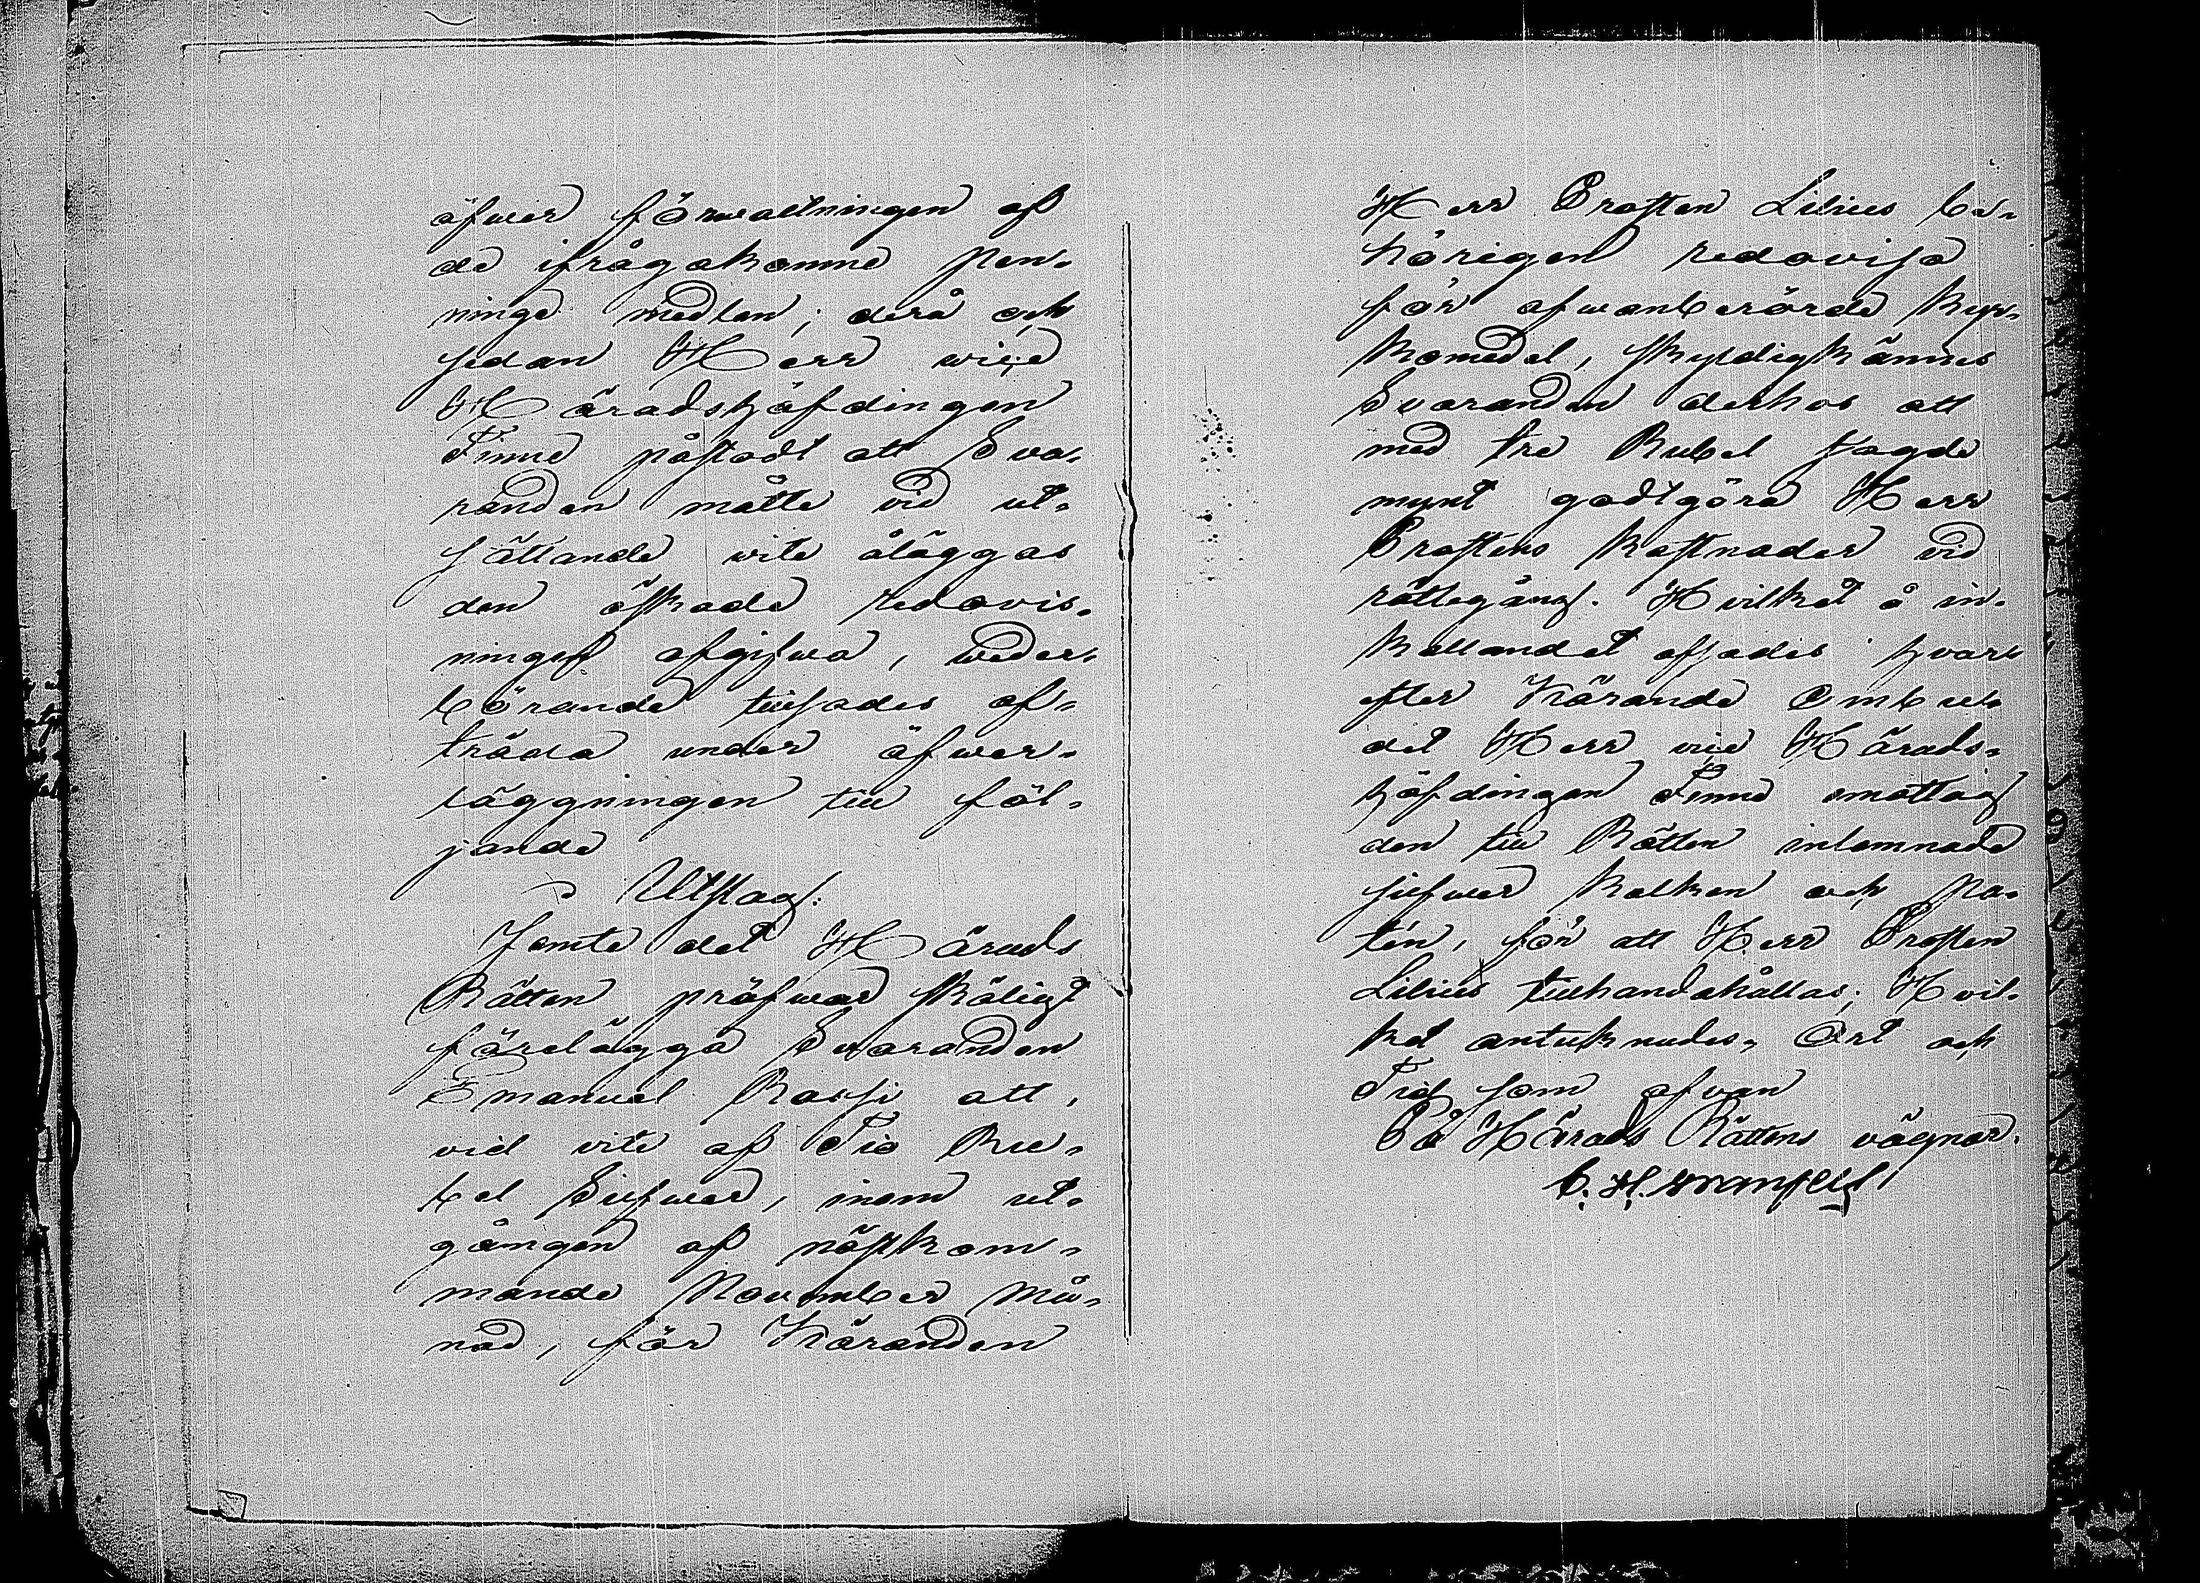 öfwer förwaltningen af
de ifrågakomne pen-
ninge medlen; derå och
sedan Herr vice
Häradshöfdingen
Finne påstadt att Sva-
randen måtte vid ut-
sättande vite åläggas
den äskade redovis-
ningen afgifwa, weder-
börande tillsades af-
träda under öfwer-
läggningen till föl-
jande
Utslag:
Jemte det Härads
Rätten pröfwar skäligt
förelägga Svaranden
Emanuel Rassi att,
vid vite af Tio Ru-
bel Silfwer, inom ut-
gången af nästkom-
mande November Må-
nad, för Käranden
Herr Prosten Lilius be-
hörigen redovisa
för ofwanberörde Kyr-
komedel, skyldigkännes
Svaranden derhos att
med tre Rubel sagde
mynt godtgöra Herr
Prostens kostnader vid
rättegång. Hvilket å in-
kallandet afsades hvar-
efter Kärande Ombu-
det Herr vice Härads-
höfdingen Finne emottog
den till Rätten inlemnade
silfwer kalken och Pa-
tén, för att Herr Prosten
Lilius tillhandahållas; Hvil-
ket antecknades, Ort och
Tid som ofvan
På Härads Rättens vägnar.
C. H.